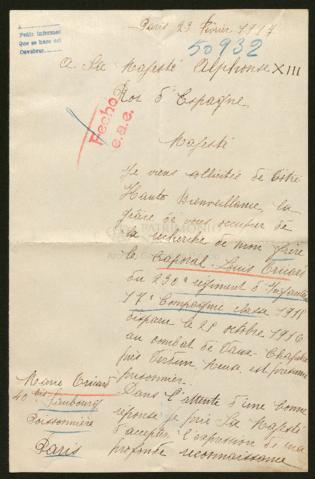 Paris 23 Février 1917
50932
A Sa Majesté Alphonse XIII
Roi d'Espagne
Fecho
e.a.e.
Majesté
Je viens sollicitée de Votre
Haute Bienveillance, la
grâce de vous occuper de
la recherche de mon frère
le Caporal Louis
du 230e regiment d'Infanterie
17e Compagnie classe 1918
disparu le 28 octobre 1916
au combat de Vaux-Chapitre
près Verdun Meuse, est présumé
prisonnier.
Dans l'attente d'une bonne
reponse je prie Sa Majesté
d'accepter l'expression de ma
profonde reconnaissance
Marie
40 bis faubourg
Poissonnière
Paris